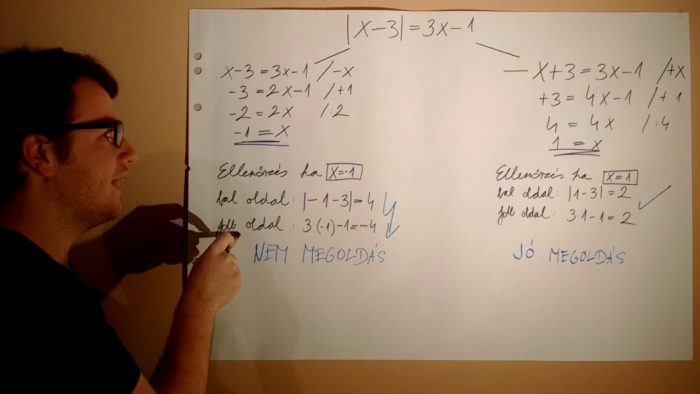 |x-3|=3x-1
x-3=3x-1 /-x
-3=2x-1 /+1
-2=2x /:2
-1=x
Ellenőrzés ha x=-1
bal oldal: |-1-3|=4
jobb oldal: 3·(-1)-1=-4
NEM MEGOLDÁS
-x+3=3x-1 /+x
+3=4x-1 /+1
4=4x /:4
1=x
Ellenőrzés ha x=1
bal oldal: |1-3|=2
jobb oldal: 3·1-1=2
JÓ MEGOLDÁS